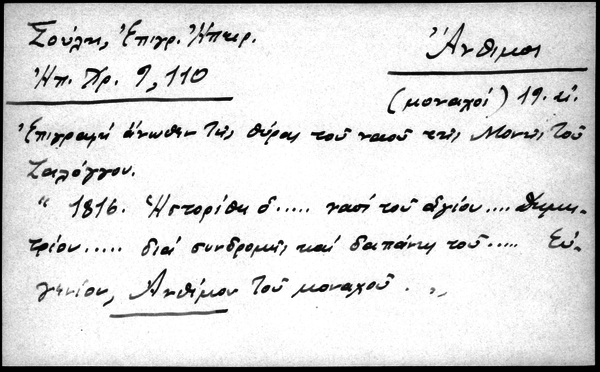 Σούλη, Ἐπιγρ. Ἠπειρ.
Ἠπ. Χρ. 9, 110
Ἄνθιμος
(μοναχοί) 19. αἰ.
Ἐπιγραφή ἄνωθεν τῆς θύρας τοῦ ναοῦ τῆς Μονῆς τοῦ
Ζαλόγγου.
" 1816. Ἠστορίθη ὁ..... ναός τοῦ ἁγίου.... Δημη-
τρίου..... διά συνδρομῆς καί δαπάνης τοῦ..... Εὐ-
γενίου, Ἀνθίμου τοῦ μοναχοῦ. „